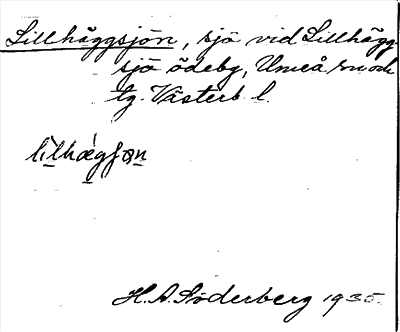 Lillhäggsjön, sjö vid Lillhägg
sjö ödeby, Umeå sn och
tg. Västerb. l.
lìlhæ̀gʃøn
H. A. Söderberg 1935.